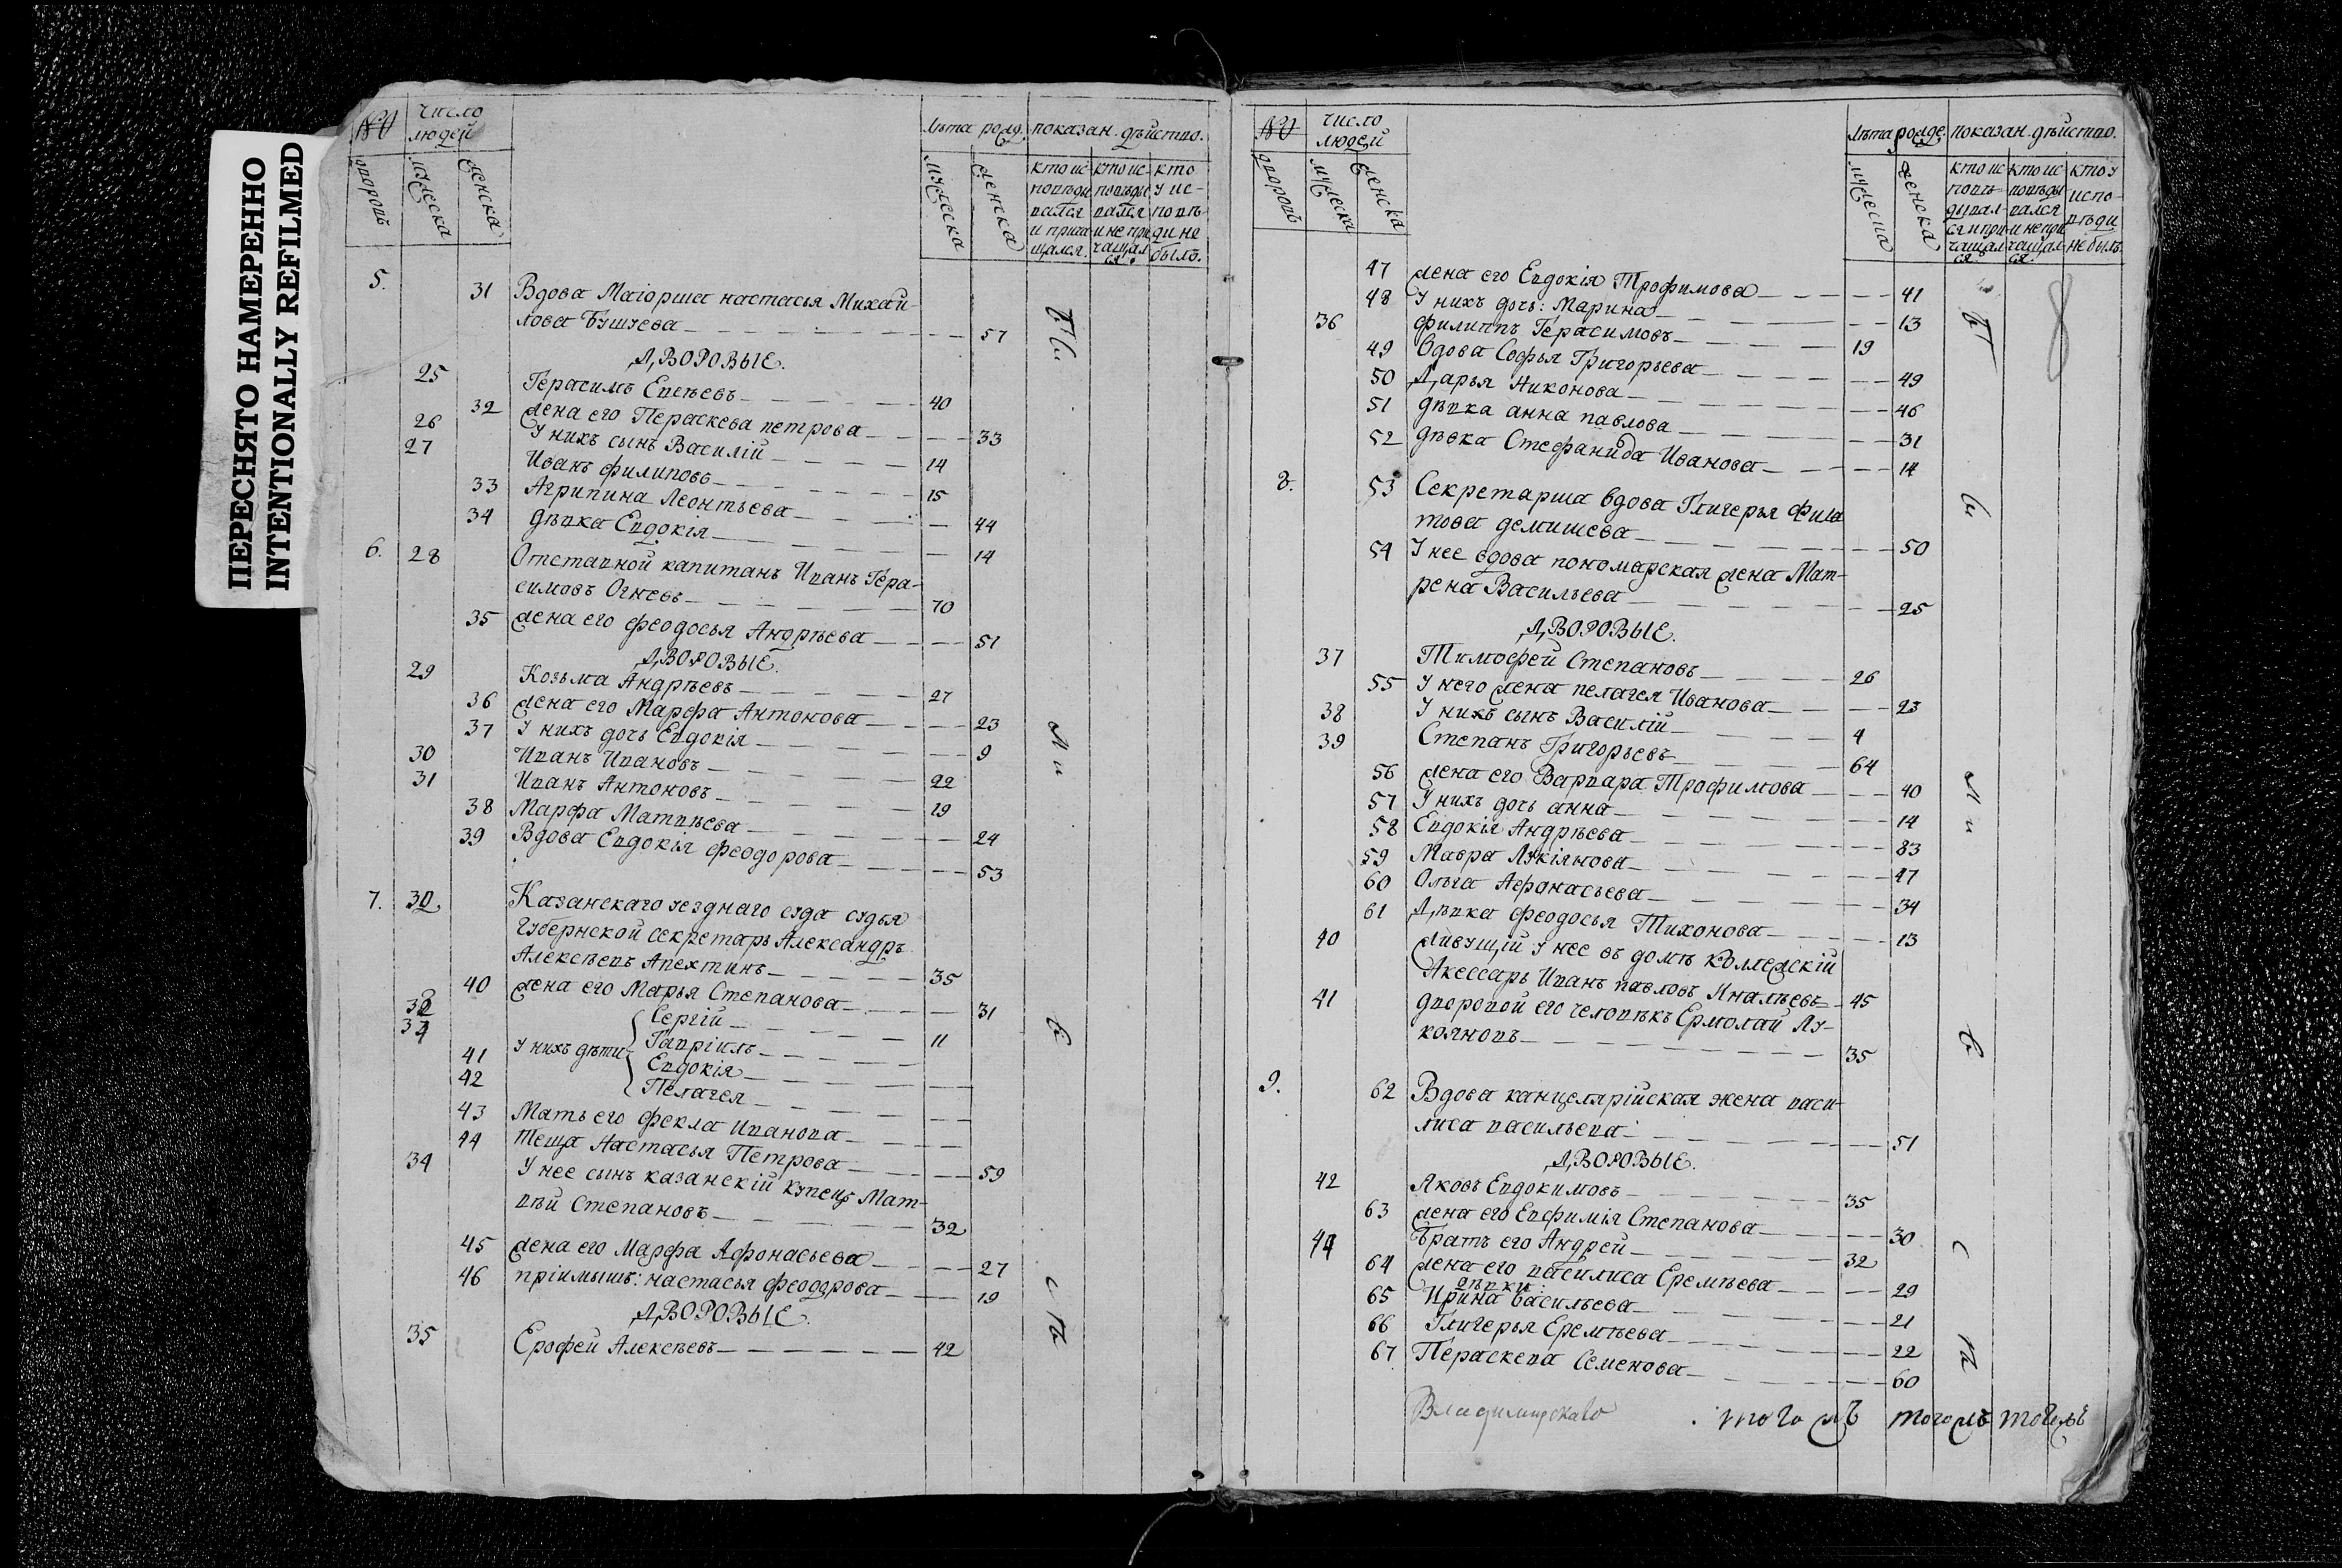 ПЕРЕСНЯТО НАМЕРЕННО
INTENTIONALLY REFILMED
число
людей
лѣта рожд. показан. дѣйство.
дворовъ
мужеска
женска
мужеска
женска
кто ис- кто ис- кто
повѣды повѣды у ис-
вался вался повѣ-
и прича и не при ди не
щался. чащал былъ.
ся.
5.
31 Вдова Маіорша настасья Михай-
лова Бушуева 57
ДВОРОВЫЕ.
25 Герасимъ Евсѣевъ 40
32 жена его Пераскева петрова 33
26 У нихъ сынъ Василій 14
27 Иванъ филиповъ 15
33 Агрипина Леонтьева 44
34 дѣвка Евдокія 14
6. 28 Отставной капитанъ Иванъ Гера-
симовъ Огневъ 70
35 жена его феодосья Андрѣева 51
ДВОРОВЫЕ.
29 Козьма Андрѣевъ 27
36 жена его Марфа Антонова 23
37 У нихъ дочь Евдокія 9
30 Иванъ Ивановъ 22
31 Иванъ Антоновъ 19
38 Марфа Матвѣева 24
39 Вдова Евдокія феодорова 53
7. 32. Казанскаго уезднаго суда судья
Губернской секретарь Александръ
Алексѣевъ Апехтинъ 35
40 жена его Марья Степанова 31
Сергій 11
У нихъ дѣти Гавріилъ
41 Евдокія
42 Пелагея
43 Мать его фекла Иванова
44 теща Настасья Петрова 59
34 У нее сынъ казанскій купецъ Мат-
вѣй Степановъ 32
45 жена его Марфа Афонасьева 27
46 пріимышъ: настасья феодорова 19
ДВОРОВЫЕ.
35 Ерофей Алексѣевъ 42
число
людей
лѣта рожде. показан. дѣйство.
дворовъ
мужеска
женска
мужеска
женска
кто ис кто ис кто у
повѣ- повѣды испо-
дывал- вался вѣди
ся и при и не при не былъ.
чащал чащал
ся. ся.
47 жена его Евдокія Трофимова 41
48 У нихъ дочь: Марина 13
36 филиппъ Герасимовъ 19
49 вдова Софья Григорьева 49
50 Дарья Никонова 46
51 дѣвка анна павлова 31
52 дѣвка Стефанида Иванова 14
8. 53 Секретарша вдова Гликерья фила
това демишева 50
54 У нее вдова пономарская жена Мат-
рена Васильева 25
ДВОРОВЫЕ.
37 Тимофей Степановъ 26
55 У него жена пелагея Иванова 23
38 У нихъ сынъ Василій 4
39 Степанъ Григорьевъ 64
56 жена его Варвара Трофимова 40
57 У нихъ дочь анна 14
58 Евдокія Андрѣева 83
59 Мавра Лукіянова 47
60 Ольга Афонасьева 34
61 Дѣвка феодосья Тихонова 13
40 живущій у нее въ домѣ коллежскій
Асессаръ Иванъ павловъ 45
41 дворовой его человѣкъ Ермолай Лу-
кояновъ 35
9. 62 Вдова канцелярійская жена васи-
лиса васильева 51
ДВОРОВЫЕ.
42 Яковъ Евдокимовъ 35
63 жена его Евфимія Степанова 30
Братъ его Андрей 32
64 жена его василиса Еремѣева 29
дѣвки:
65 Ирина васильева 21
66 Гликерья Еремѣева 22
67 Пераскева Семенова 60
Владимирскаго
тогожъ тогожъ тогожъ